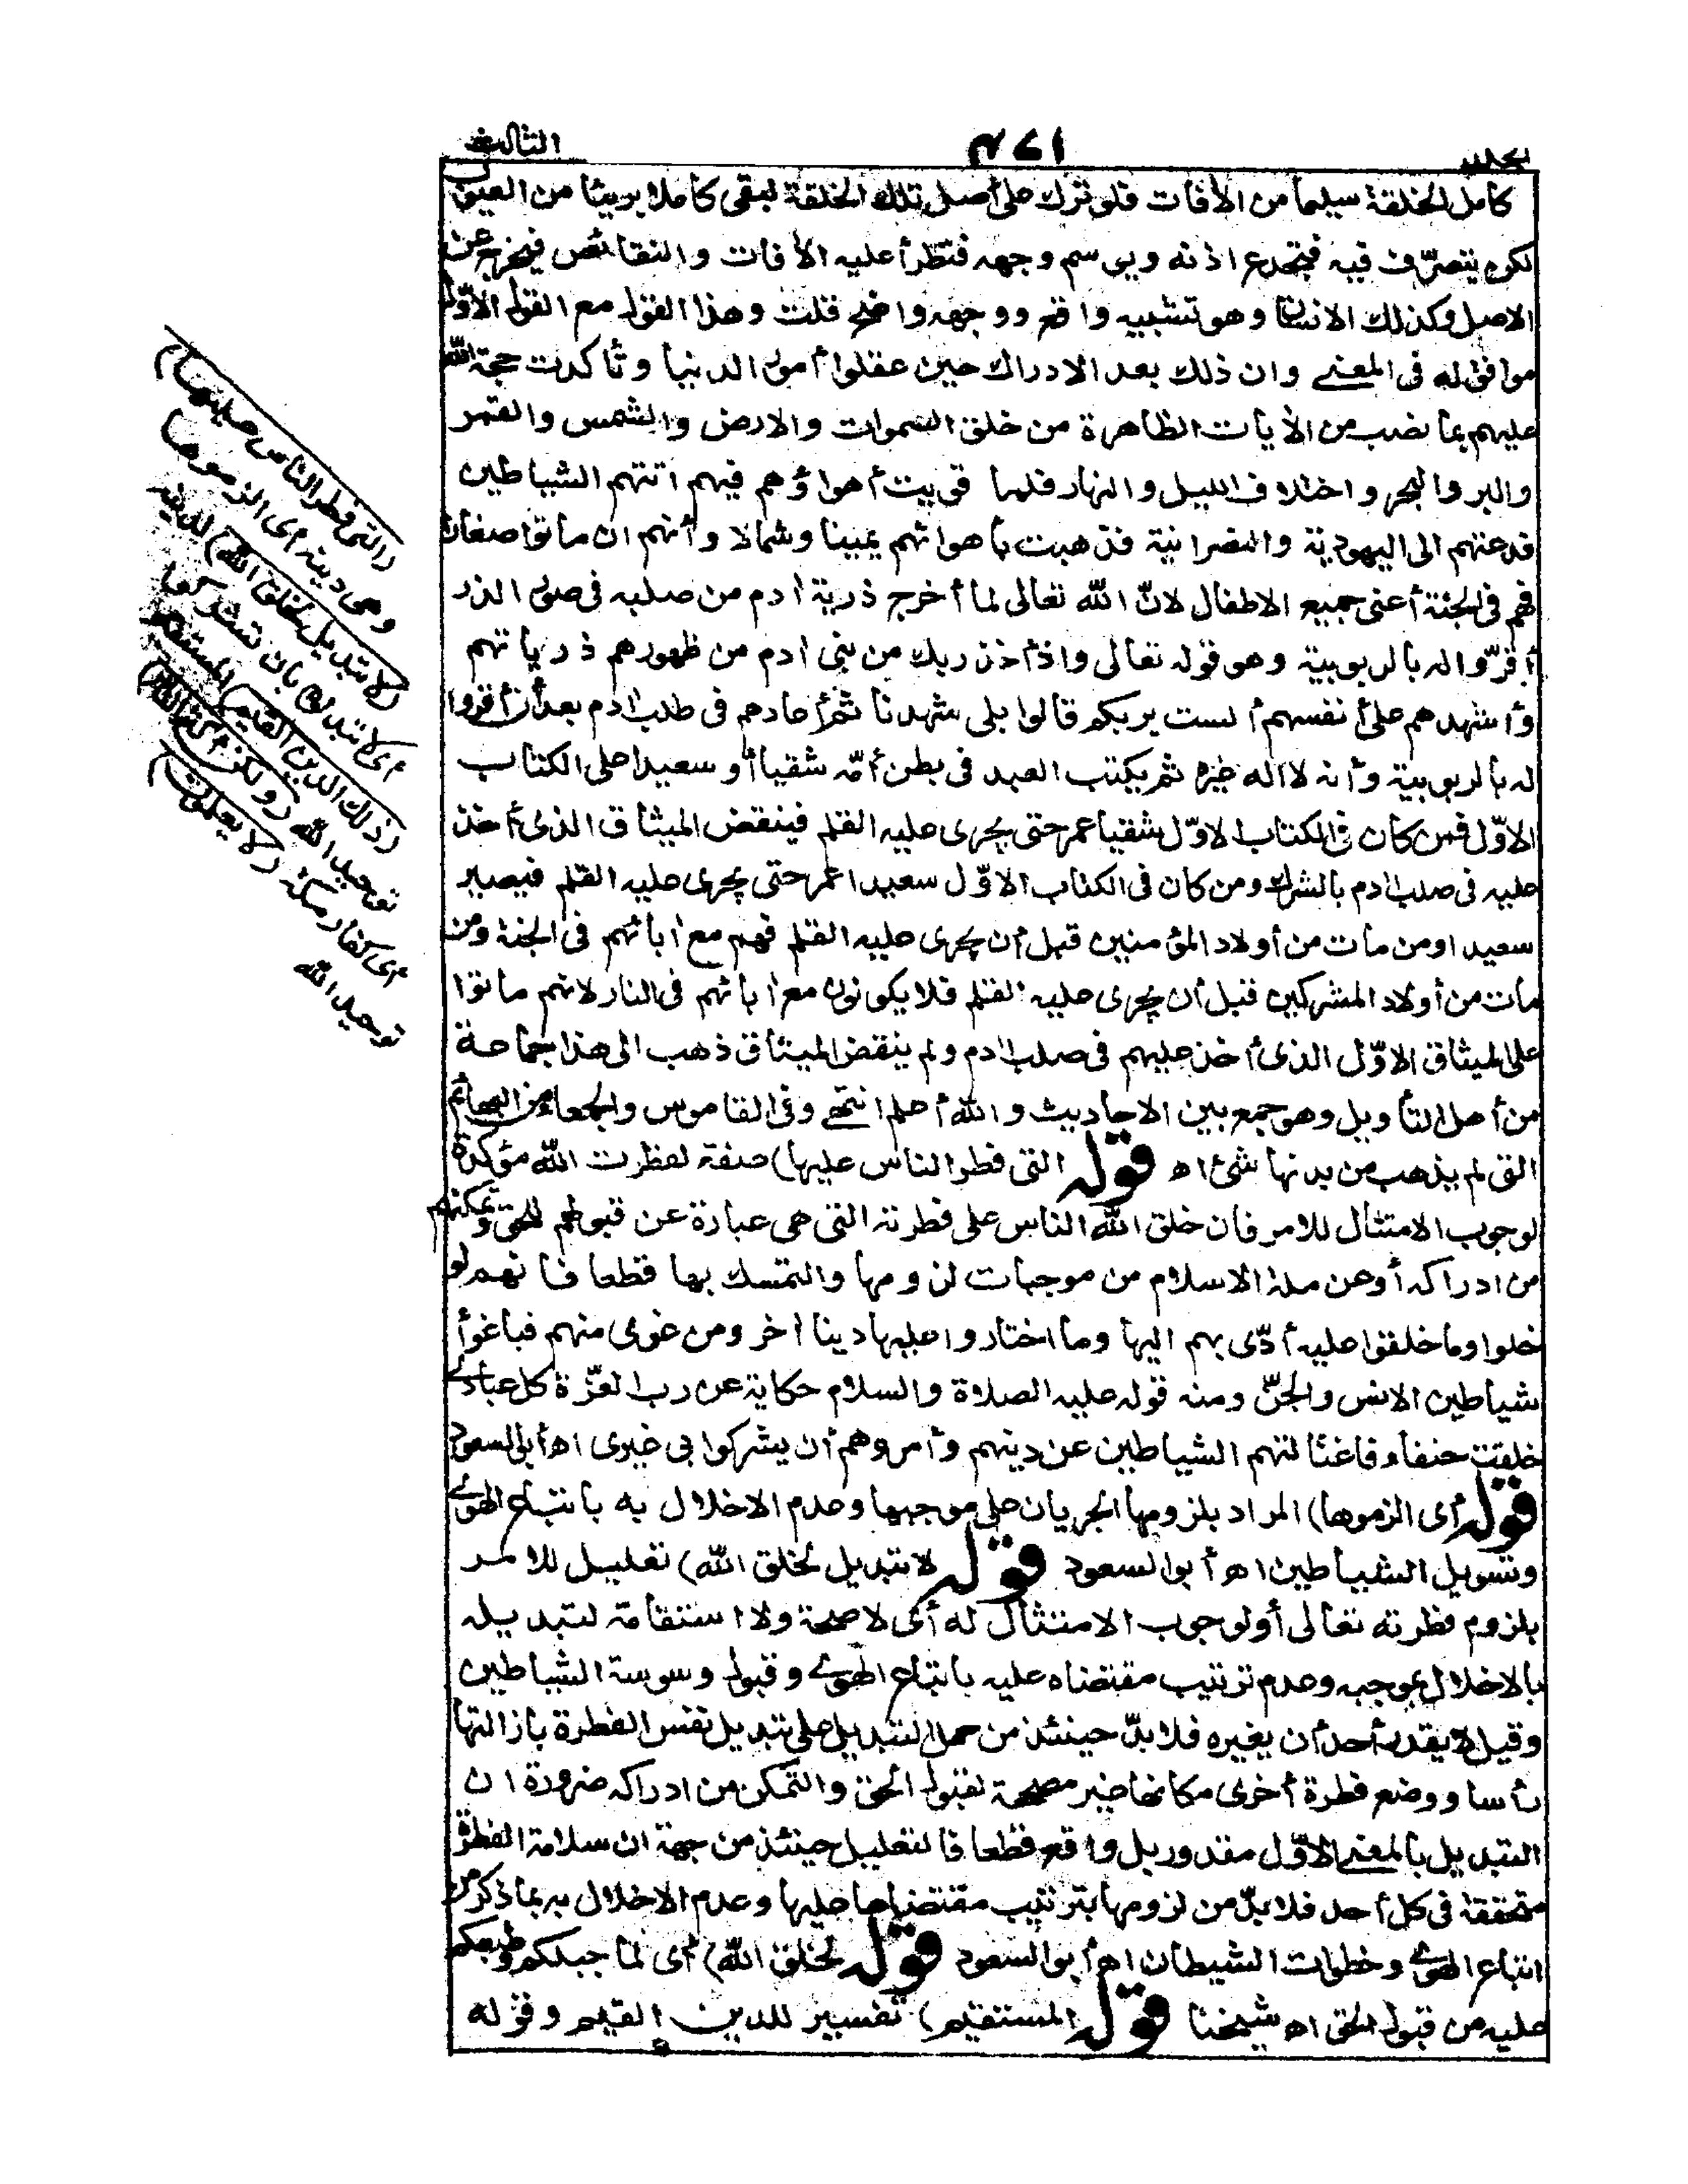 الثالث
٤٧١
كامل الخلقة سيلما من الأفات فلو ترك على أصل تلك الخلقة لبقى كاملا بريئا من العيوب
لكن يتصرّف فيه فيجدع اذنه ويوسم وجهه فتطرأ عليه الأفات والنقائص فيخرج عن
الاصل وكذلك الانسان وهو تشبيه واقع ووجهه واضح قلت وهذا القول مع القول الاوّل
موافق له فى المعنى وان ذلك بعد الادراك حين عقلوا أمور الدنيا وتأكدت حجة الله
عليهم بما نصب من الأيات الظاهرة من خلق السموات والارض والشمس والقمر
والبر والبحر واختلاف الليل والنهار فلما قويت أهواؤهم فيهم اتتهم الشياطين
فدعتهم الى اليهودية والنصرانية فذهبت بأهوائهم يمينا وشمالا وأنهم ان ماتوا صغارا
فهم فى الجنة أعنى جميع الاطفال لانّ الله تعالى لما أخرج ذرية أدم من صلبه فى صور الذر
أقرّوا له بالربوبية وهو قوله تعالى واذ أخذ ربك من بنى أدم من ظهورهم ذرياتهم
وأشهدهم على أنفسهم ألست بربكم قالوا بلى شهدنا ثم أعادهم فى صلب أدم بعد أن أقروا
له بالربوبية وأنه لا اله غيره ثم يكتب العبد فى بطن أمّه شقيا أو سعيدا على الكتاب
الاوّل فمن كان فى الكتاب الاوّل شقيا عمر حتى يجرى عليه القلم فينقض الميثاق الذى أخذ
عليه فى صلب أدم بالشرك ومن كان فى الكتاب الاوّل سعيدا عمر حتى يجرى عليه القلم فيصير
سعيدا ومن مات من أولاد المؤمنين قبل أن يجرى عليه القلم فهم مع أبائهم فى الجنة ومن
مات من أولاد المشركين قبل أن يجرى عليه القلم فلا يكونون مع أبائهم فى النار لانهم ماتوا
على الميثاق الاوّل الذى أخذ عليهم فى صلب أدم ولم ينقض الميثاق ذهب الى هذا جماعة
من أهل التأويل وهو جمع بين الاحاديث والله أعلم انتهى وفى القاموس والجمعاء من البهائم
التى لم يذهب من بدنها شئ اه قوله التى فطر الناس عليها) صفة لفطرت الله مؤكدة
لوجوب الامتثال للامر فان خلق الله الناس على فطرته التى هى عبارة عن قبولهم للحق وتمكنهم
من ادراكه أو عن ملة الاسلام من موجبات لزومها والتمسك بها قطعا فانهم لو
خلوا وما خلقوا عليه أدّى بهم اليها وما اختاروا عليها دينا أخر ومن غوى منهم فباغوأ
شياطين الانس والجنّ ومنه قوله عليه الصلاة والسلام حكاية عن رب العزّة كل عبادى
خلقت حنفاء فاغتالتهم الشياطين عن دينهم وأمروهم أن يشركوا بى غيرى اه أبو السعود
قوله أى الزموها) المراد بلزومها الجريان على موجبها وعدم الاخلال به باتباع الهوى
وتسويل الشياطين اه أبو السعود قوله لا تبديل لخلق الله) تعليل للامر
بلزوم فطرته تعالى أو لوجوب الامتثال له أى لا صحة ولا استقامة لتبديله
بالاخلال بموجبه وعدم ترتيب مقتضاه عليه باتباع الهوى وقبول وسوسة الشياطين
وقيل لا يقدر أحد أن يغيره فلا بدّ حينئذ من حمل التبديل على تبديل نفس الفطرة بازالتها
رأسا ووضع فطرة أخرى مكانها غير مصححة لقبول الحق والتمكن من ادراكه ضرورة ان
التبديل بالمعنى الاوّل مقدور بل واقع قطعا فالتعليل حينئذ من جهة ان سلامة الفطرة
متحققة فى كل أحد فلا بدّ من لزومها بترتيب مقتضاها عليها وعدم الاخلال به بما ذكر من
اتباع الهوى وخطوات الشيطان اه أبو السعود قوله لخلق الله) أى لما جبلكم وطبعكم
عليه من قبول الحق اه شيخنا قوله المستقيم) تفسير للدين القيم وقوله
(التى فطر الناس عليها)
وهى دينه أى الزموها
(لا تبديل لخلق الله) لدينه
أى لا تبدلوه بان تشركوا
(ذلك الدين القيم) المستقيم
توحيد الله (ولكن أكثر الناس)
أى كفار مكة (لا يعلمون)
توحيد الله